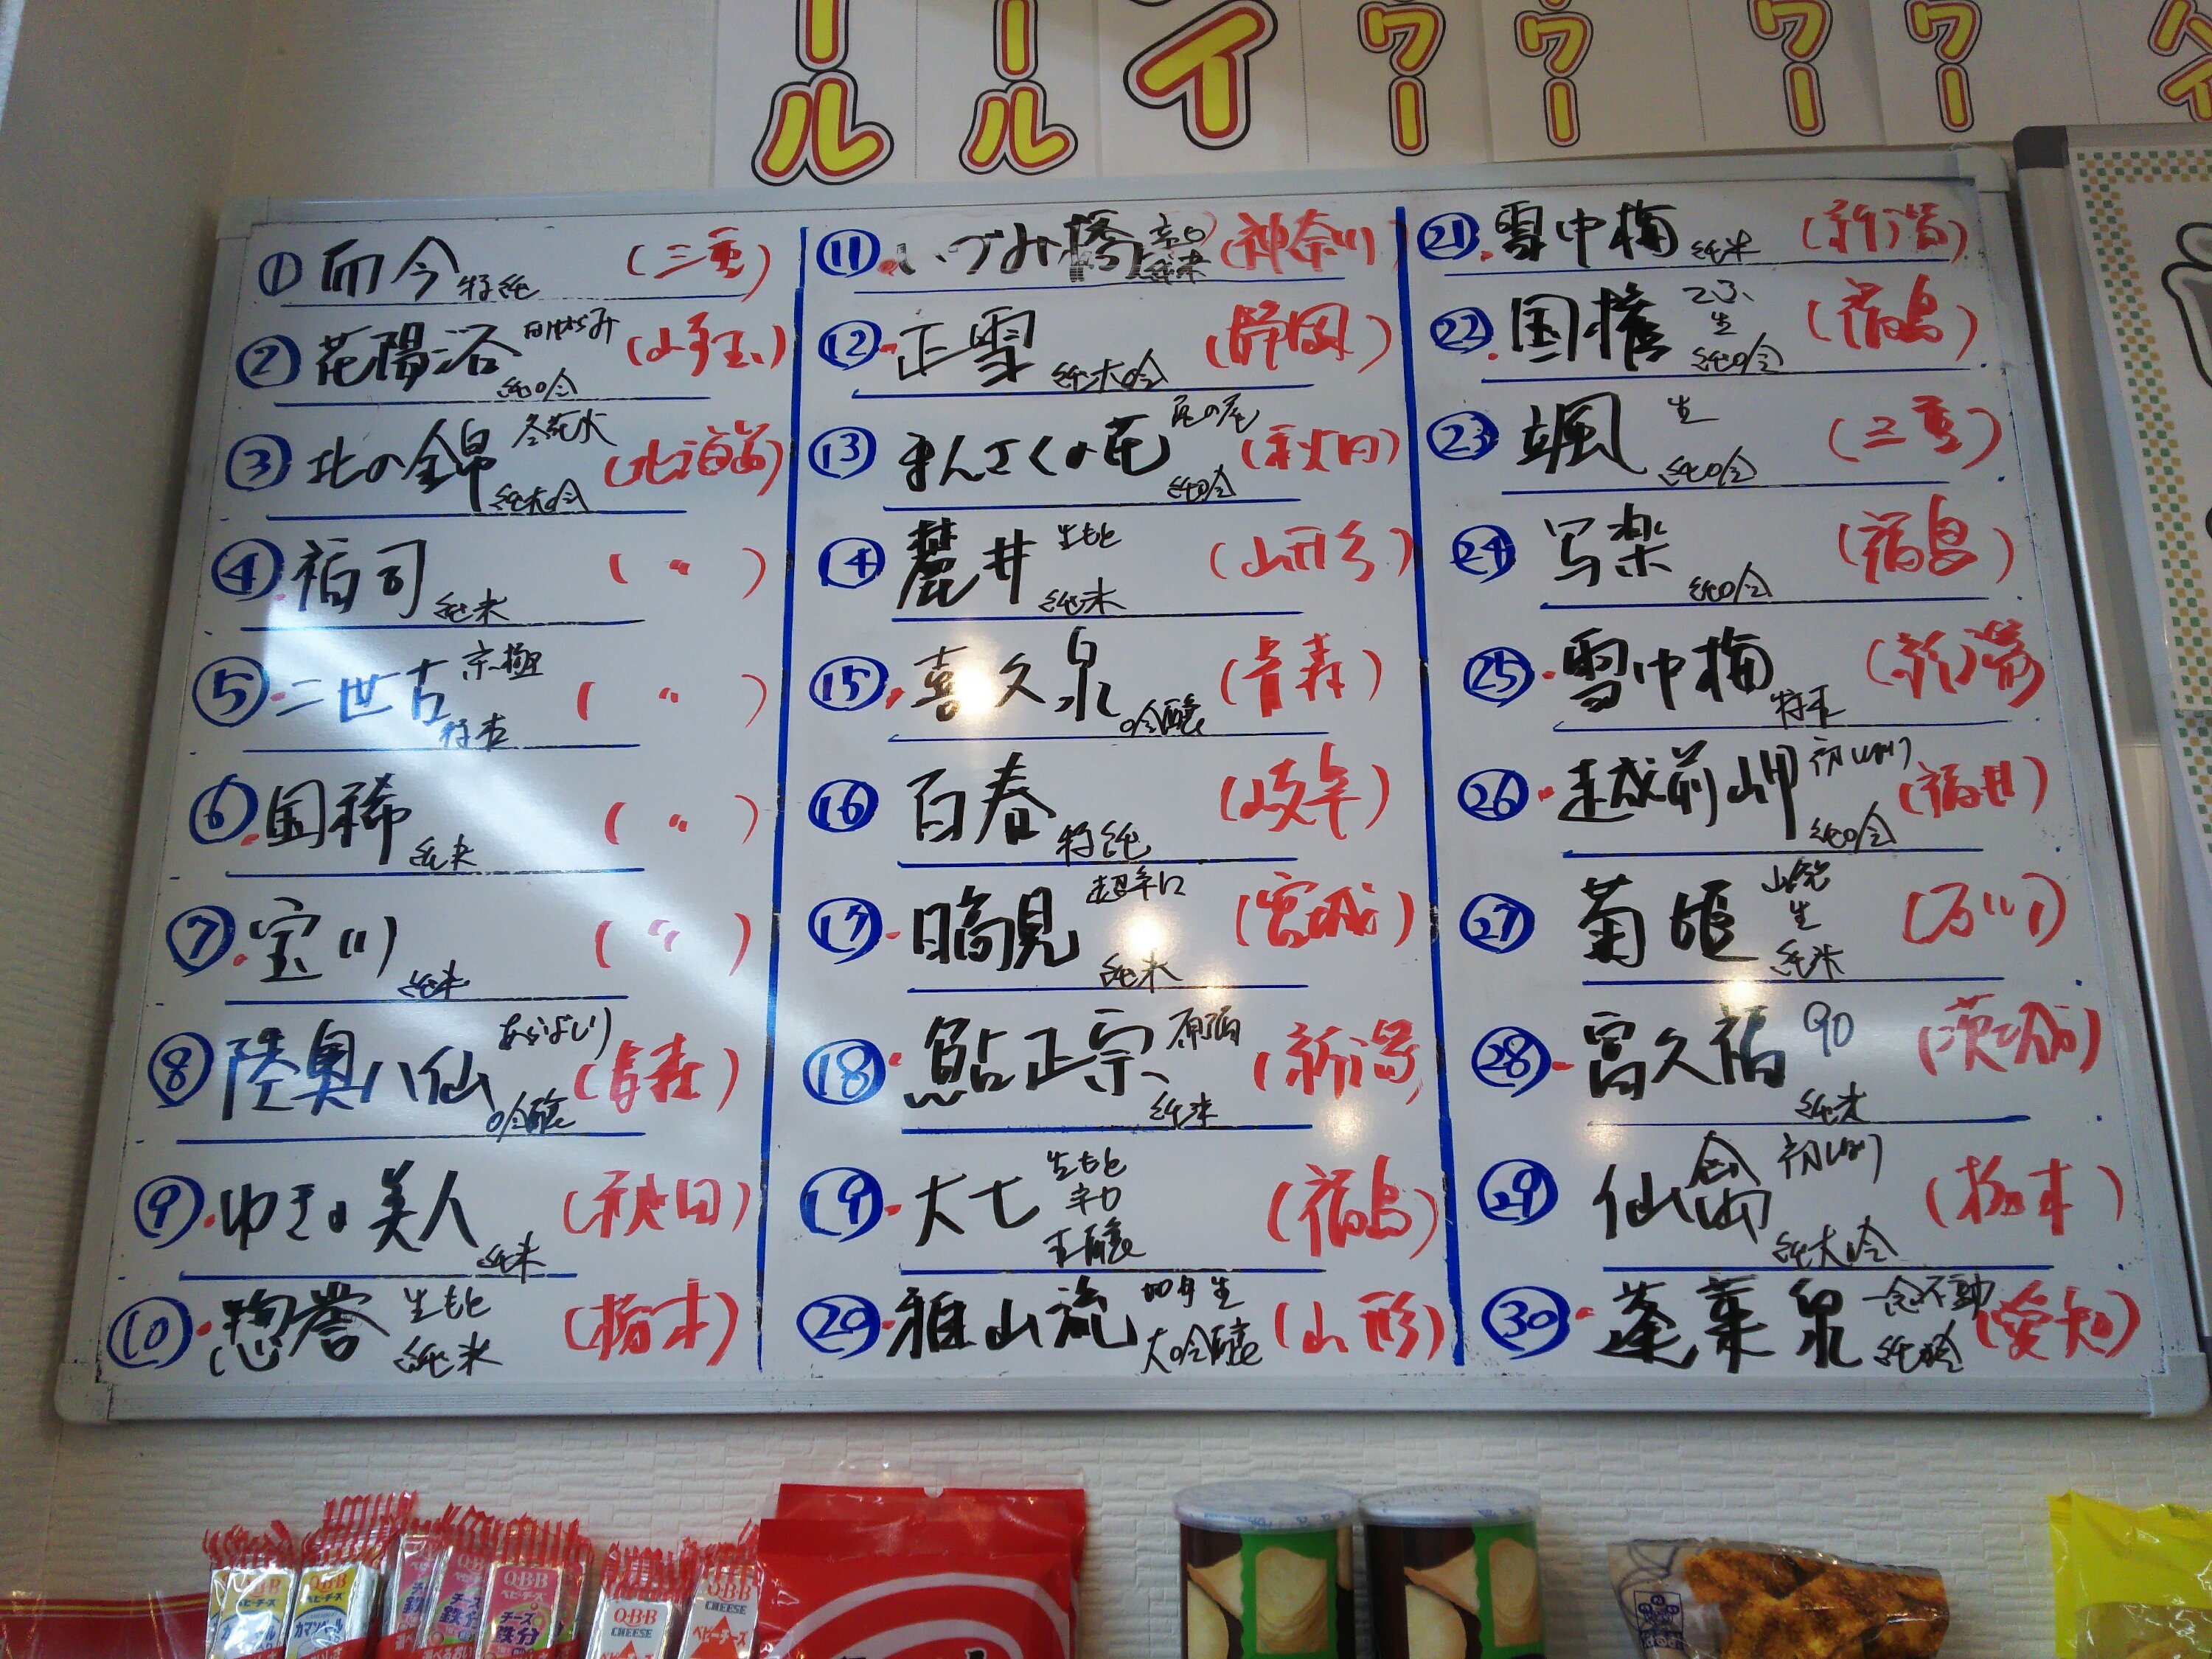 ール
ール
イ
ワー
ワー
ワー
ワー
ハイ
① 而今 特純 (三重)
② 花陽浴 純吟 (埼玉)
③ 北の錦 冬花火 純米吟 (北海道)
④ 福司 純米 ( 〃 )
⑤ 二世古 京極 特本 ( 〃 )
⑥ 国稀 純米 ( 〃 )
⑦ 宝川 純米 ( 〃 )
⑧ 陸奥八仙 あらばしり 吟醸 (青森)
⑨ ゆきの美人 純米 (秋田)
⑩ 惣誉 生もと 純米 (栃木)
⑪ いづみ橋 辛口 純米 (神奈川)
⑫ 正雪 純米吟 (静岡)
⑬ まんさくの花 亀の尾 純吟 (秋田)
⑭ 麓井 生もと 純米 (山形)
⑮ 喜久泉 吟醸 (青森)
⑯ 百春 特純 (岐阜)
⑰ 日高見 超辛口 純米 (宮城)
⑱ 鮎正宗 原酒 純米 (新潟)
⑲ 大七 生もと 本醸 (福島)
⑳ 雅山流 大吟醸 (山形)
㉑ 雪中梅 純米 (新潟)
㉒ 国権 てふ 生 純吟 (福島)
㉓ 颯 生 純吟 (三重)
㉔ 写楽 純吟 (福島)
㉕ 雪中梅 特本 (新潟)
㉖ 越前岬 初しぼり 純吟 (福井)
㉗ 菊姫 山廃 生 純米 (石川)
㉘ 富久福 90 純米 (茨城)
㉙ 仙禽 初しぼり 純大吟 (栃木)
㉚ 蓬莱泉 一念不動 純吟 (愛知)
Q·B·B
ベビーチーズ
Q·B·B
ベビーチーズ
カマンベール
Q·B·B
チーズ
鉄分
Q·B·B
CHEESE
Q·B·B
CHEESE
ベビーチーズ